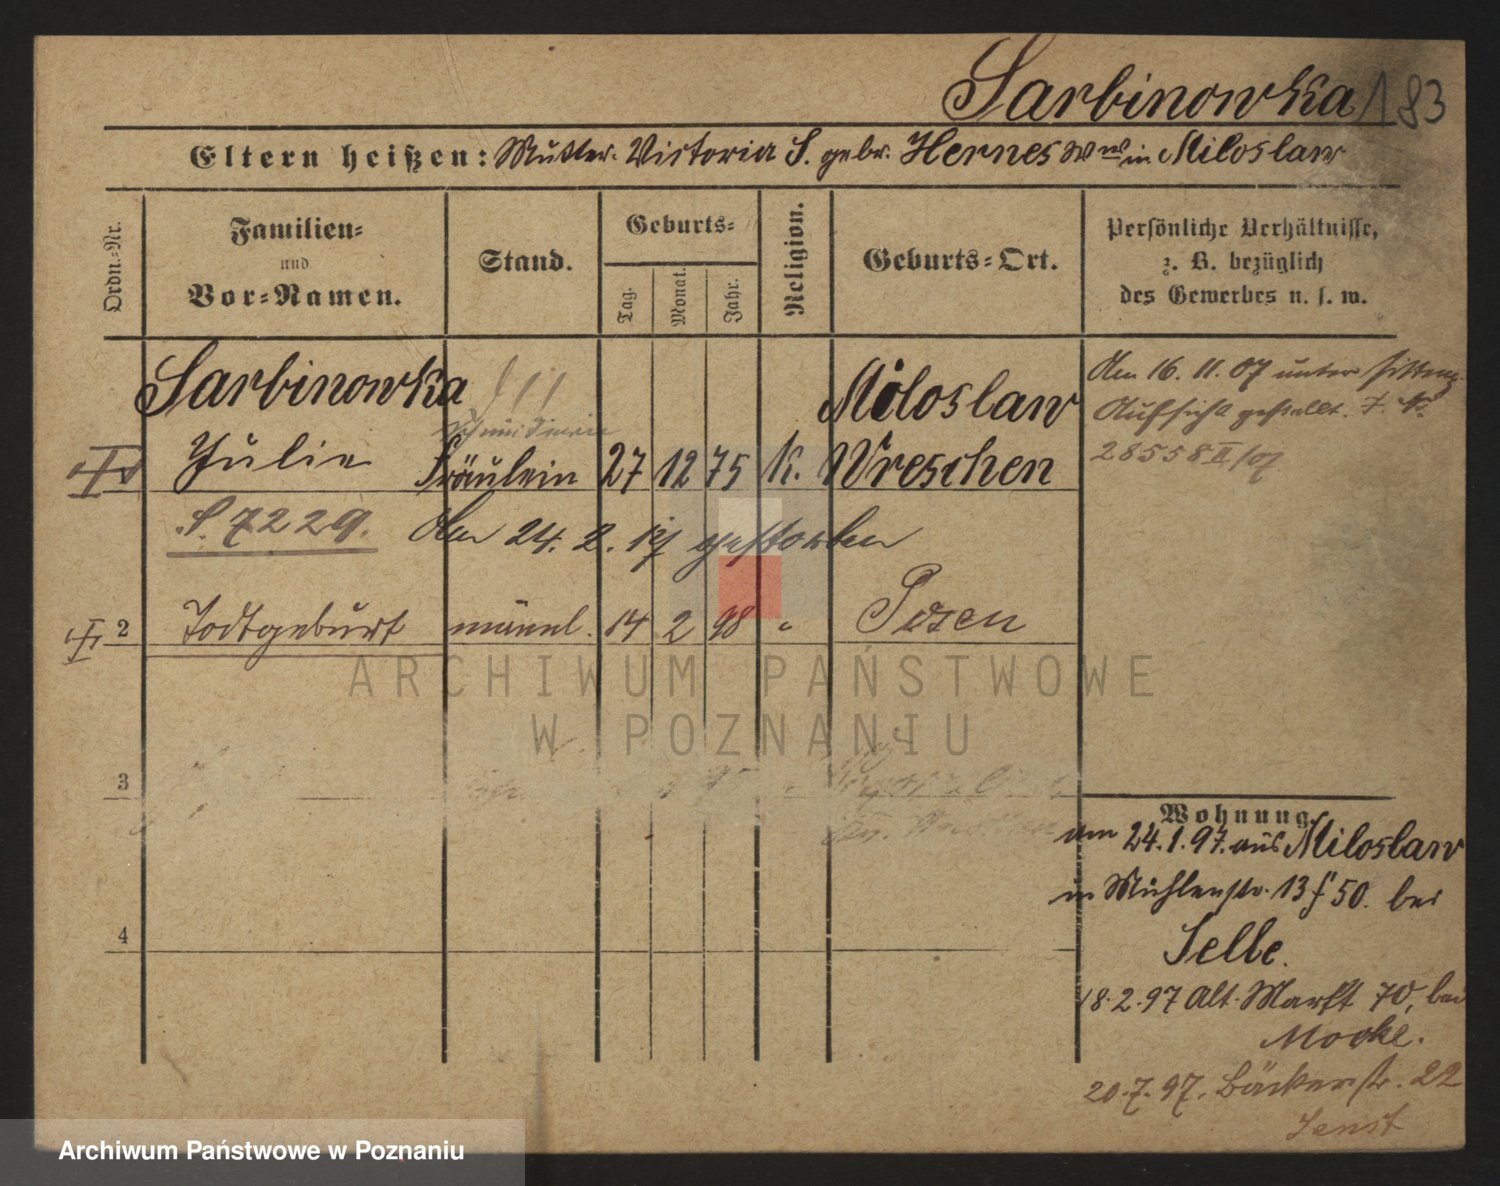 Sarbinowska 183
Eltern heißen: Mutter: Victoria S. gebr. Hernes Wwe in Miloslaw
Ordn.-Nr.
Familien-
und
Vor-Namen.
Stand.
Geburts-
Tag.
Monat.
Jahr.
Religion.
Geburts-Ort.
Persönliche Verhältnisse,
z. B. bezüglich
des Gewerbes u. s. w.
Sarbinowska Miloslaw
Julie Fräulein 27 12 75 K. Wreschen
Am 16. 11. 07 unter sitten
Aufsicht gestellt. J. No.
28558 II/07
S. 7229. Am 24. 2. gestorben
2 Todtgeburt männl. 14 2 98 " Posen
3
4
Wohnung.
am 24.1.97. aus Miloslaw
in Mühlenstr. 13 f 50. bei
Selbe.
18.2.97 Alt. Markt 70, bei
Mocke.
20.7.97. Bäckerstr. 22
ARCHIWUM PAŃSTWOWE
W POZNANIU
Archiwum Państwowe w Poznaniu